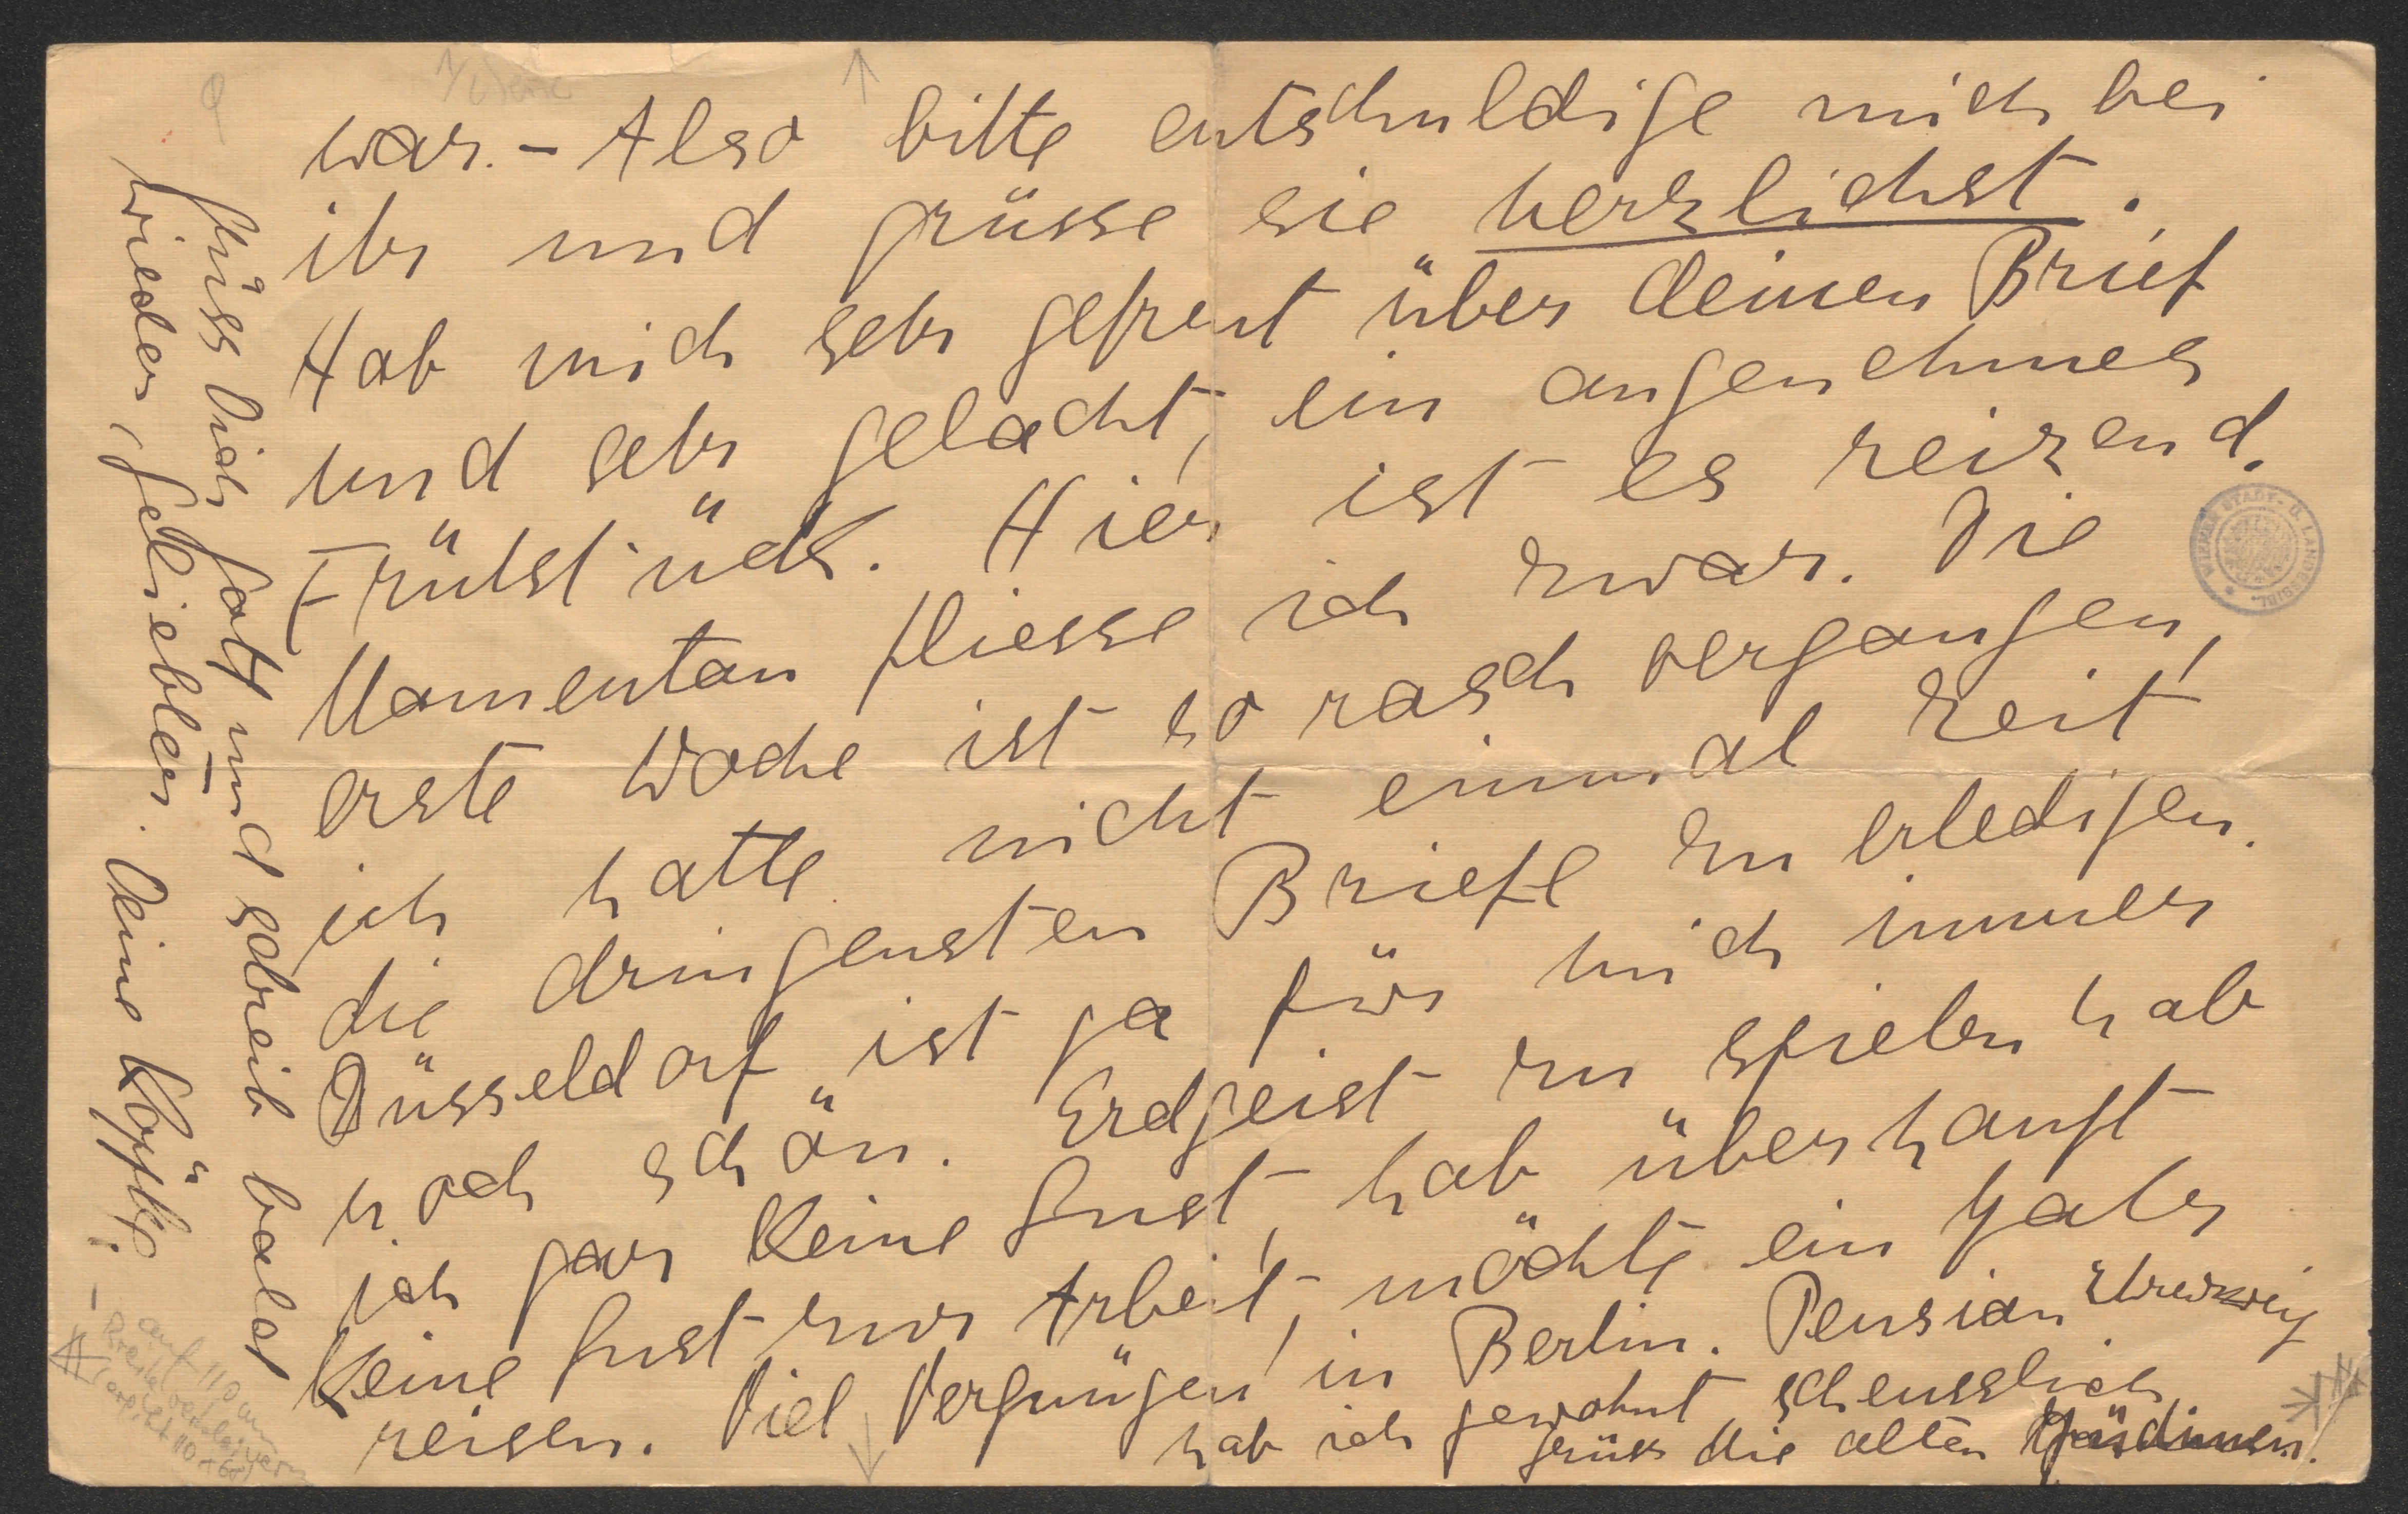 war. – Also bitte entschuldige mich bei
ihr und grüsse sie herzlichst.
Hab mich sehr gefreut über deinen Brief
und sehr gelacht, ein angenehmes
Frühstück. Hier ist es reizend.
Momentan fliesse ich zwar. Die
erste Woche ist so rasch vergangen,
ich hatte nicht einmal Zeit
die dringensten Briefe zu erledigen.
Düsseldorf ist ja für mich immer
noch schön. Erdgeist zu spielen hab
ich gar keine Lust, hab überhaupt
keine Lust zur Arbeit, möchte ein Jahr
reisen. Viel Vergnügen in Berlin. Pension
hab ich gewohnt scheusslich
grüss die alten
Grüss Dich Gott und schreib bald
wieder, Geliebter. Deine
WIENER STADT- U. LANDESBIBL.
auf 110 cm
Breite verkleinern